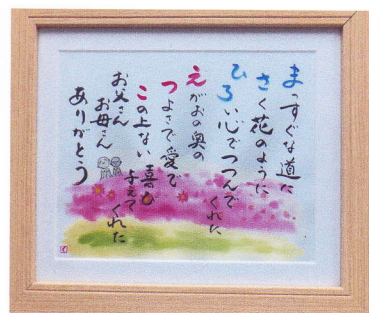 まっすぐな道に
さく花のように
ひろい心でつつんで
くれた
えがおの奥の
つよさで愛で
この上ない喜び
与えて
くれた
お父さん
お母さん
ありがとう